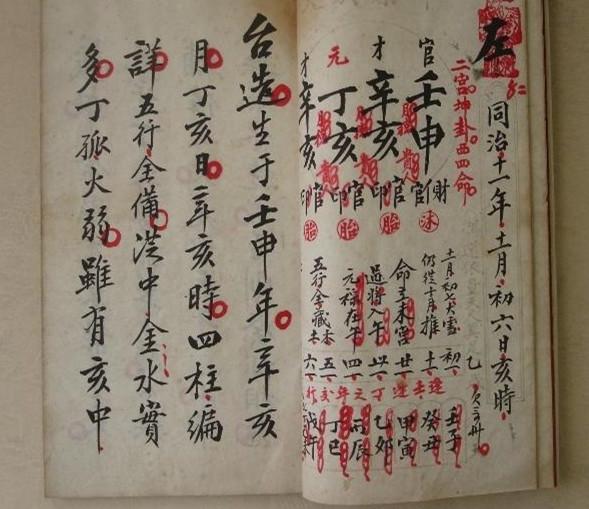 左
同治十一年十一月初六日亥時
二宮坤卦西四命
官 壬申 財官印 沐
才 辛亥 官印 胎
元 丁亥 官印 胎
才 辛亥 官印 胎
十一月初七大雪
仍從十月推
命立未宮
過將入午
元祿在午
五行金藏木土
初一 壬子
十一 癸丑
廿一 甲寅
卅一 乙卯
四一 丙辰
五一 丁巳
六一 戊午
台造生于壬申年辛亥
月丁亥日辛亥時四柱編
詳五行全備洪中金水實
多丁孤火弱雖有亥中